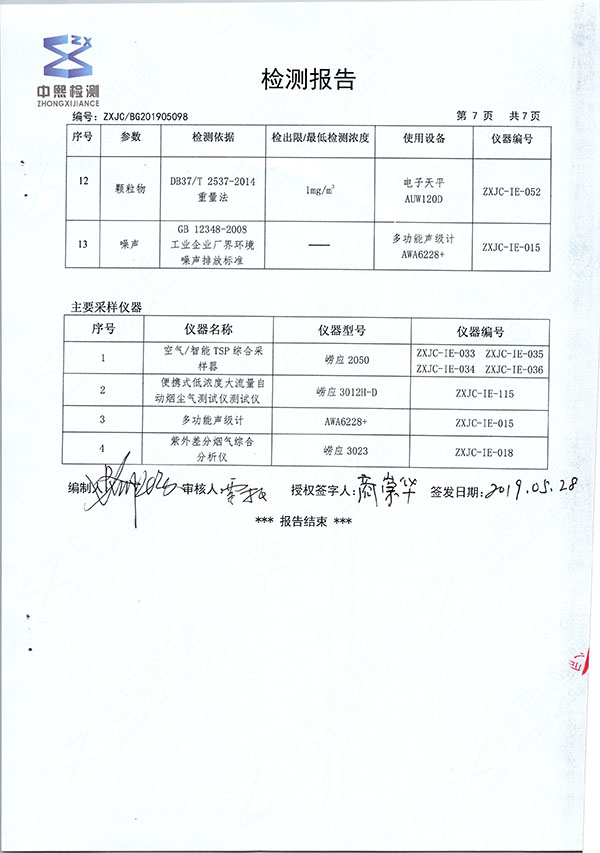 ZX
中熙检测
ZHONGXIJIANCE
检测报告
编号: ZXJC/BG201905098
第 7 页 共7页
序号 参数 检测依据 检出限/最低检测浓度 使用设备 仪器编号
12 颗粒物 DB37/T 2537-2014 重量法 1mg/m³ 电子天平 AUW120D ZXJC-IE-052
13 噪声 GB 12348-2008 工业企业厂界环境噪声排放标准 —— 多功能声级计 AWA6228+ ZXJC-IE-015
主要采样仪器
序号 仪器名称 仪器型号 仪器编号
1 空气/智能 TSP 综合采样器 崂应 2050 ZXJC-IE-033 ZXJC-IE-035 ZXJC-IE-034 ZXJC-IE-036
2 便携式低浓度大流量自动烟尘气测试仪测试仪 崂应 3012H-D ZXJC-IE-115
3 多功能声级计 AWA6228+ ZXJC-IE-015
4 紫外差分烟气综合分析仪 崂应 3023 ZXJC-IE-018
编制人 审核人 授权签字人: 商崇华 签发日期: 2019.05.28
*** 报告结束 ***